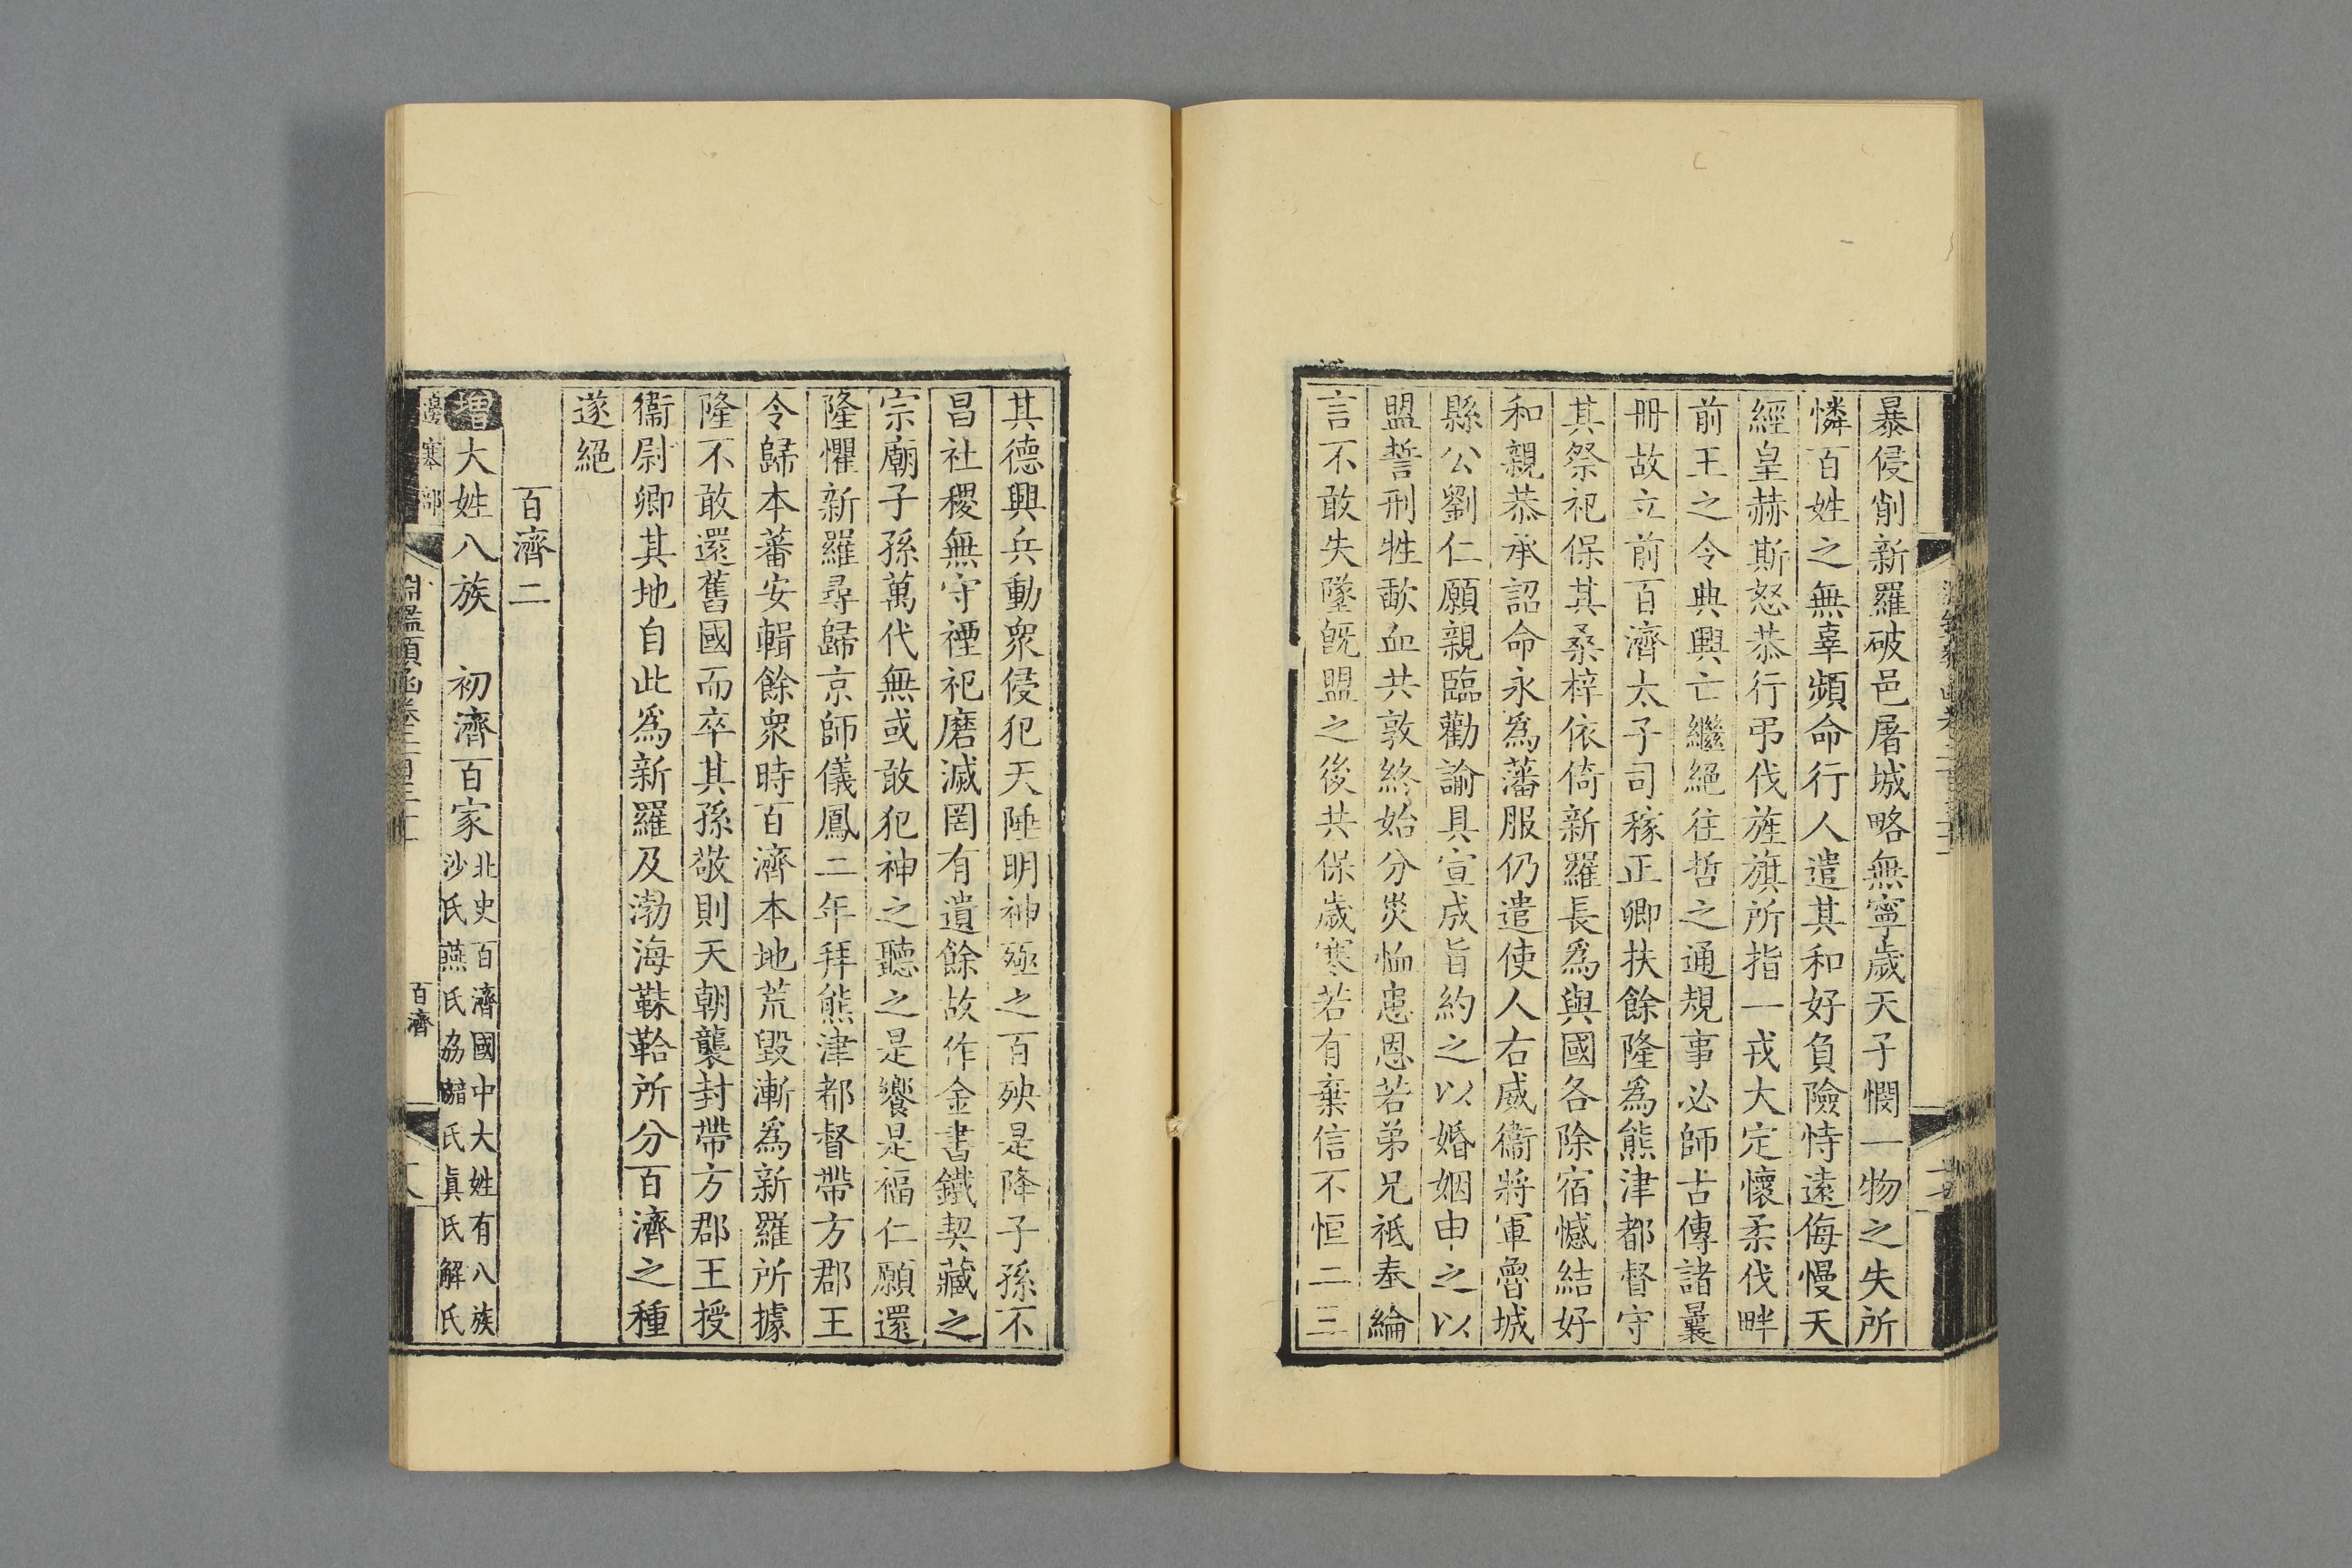 暴侵削新羅破邑屠城略無寧歲天子憫一物之失所
憐百姓之無辜頻命行人遣其和好負險恃遠侮慢天
經皇赫斯怒恭行弔伐旌旗所指一戎大定懷柔伐畔
前王之令典興亡繼絕往哲之通規事必師古傳諸曩
冊故立前百濟太子司稼正卿扶餘隆爲熊津都督守
其祭祀保其桑梓依倚新羅長爲與國各除宿憾結好
和親恭承詔命永爲藩服仍遣使人右威衞將軍魯城
縣公劉仁願親臨勸諭具宣成旨約之以婚姻申之以
盟誓刑牲歃血共敦終始分災恤患恩若弟兄祇奉綸
言不敢失墜旣盟之後共保歲寒若有棄信不恒二三
其德興兵動衆侵犯天陲明神殛之百殃是降子孫不
昌社稷無守禋祀磨滅罔有遺餘故作金書鐵契藏之
宗廟子孫萬代無或敢犯神之聽之是饗是福仁願還
隆懼新羅尋歸京師儀鳳二年拜熊津都督帶方郡王
令歸本蕃安輯餘衆時百濟本地荒毀漸爲新羅所據
隆不敢還舊國而卒其孫敬則天朝襲封帶方郡王授
衞尉卿其地自此爲新羅及渤海靺鞨所分百濟之種
遂絕
百濟二
增大姓八族　初濟百家
北史百濟國中大姓有八族
沙氏燕氏劦氏眞氏解氏
邊塞部
淵鑑類函卷二百三十一
百濟
十八